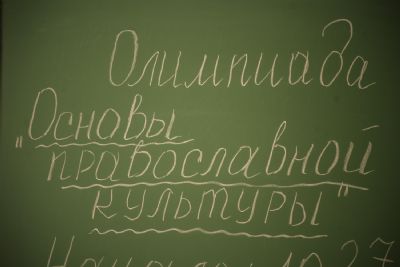 Олимпиада
"Основы
православной
культуры"